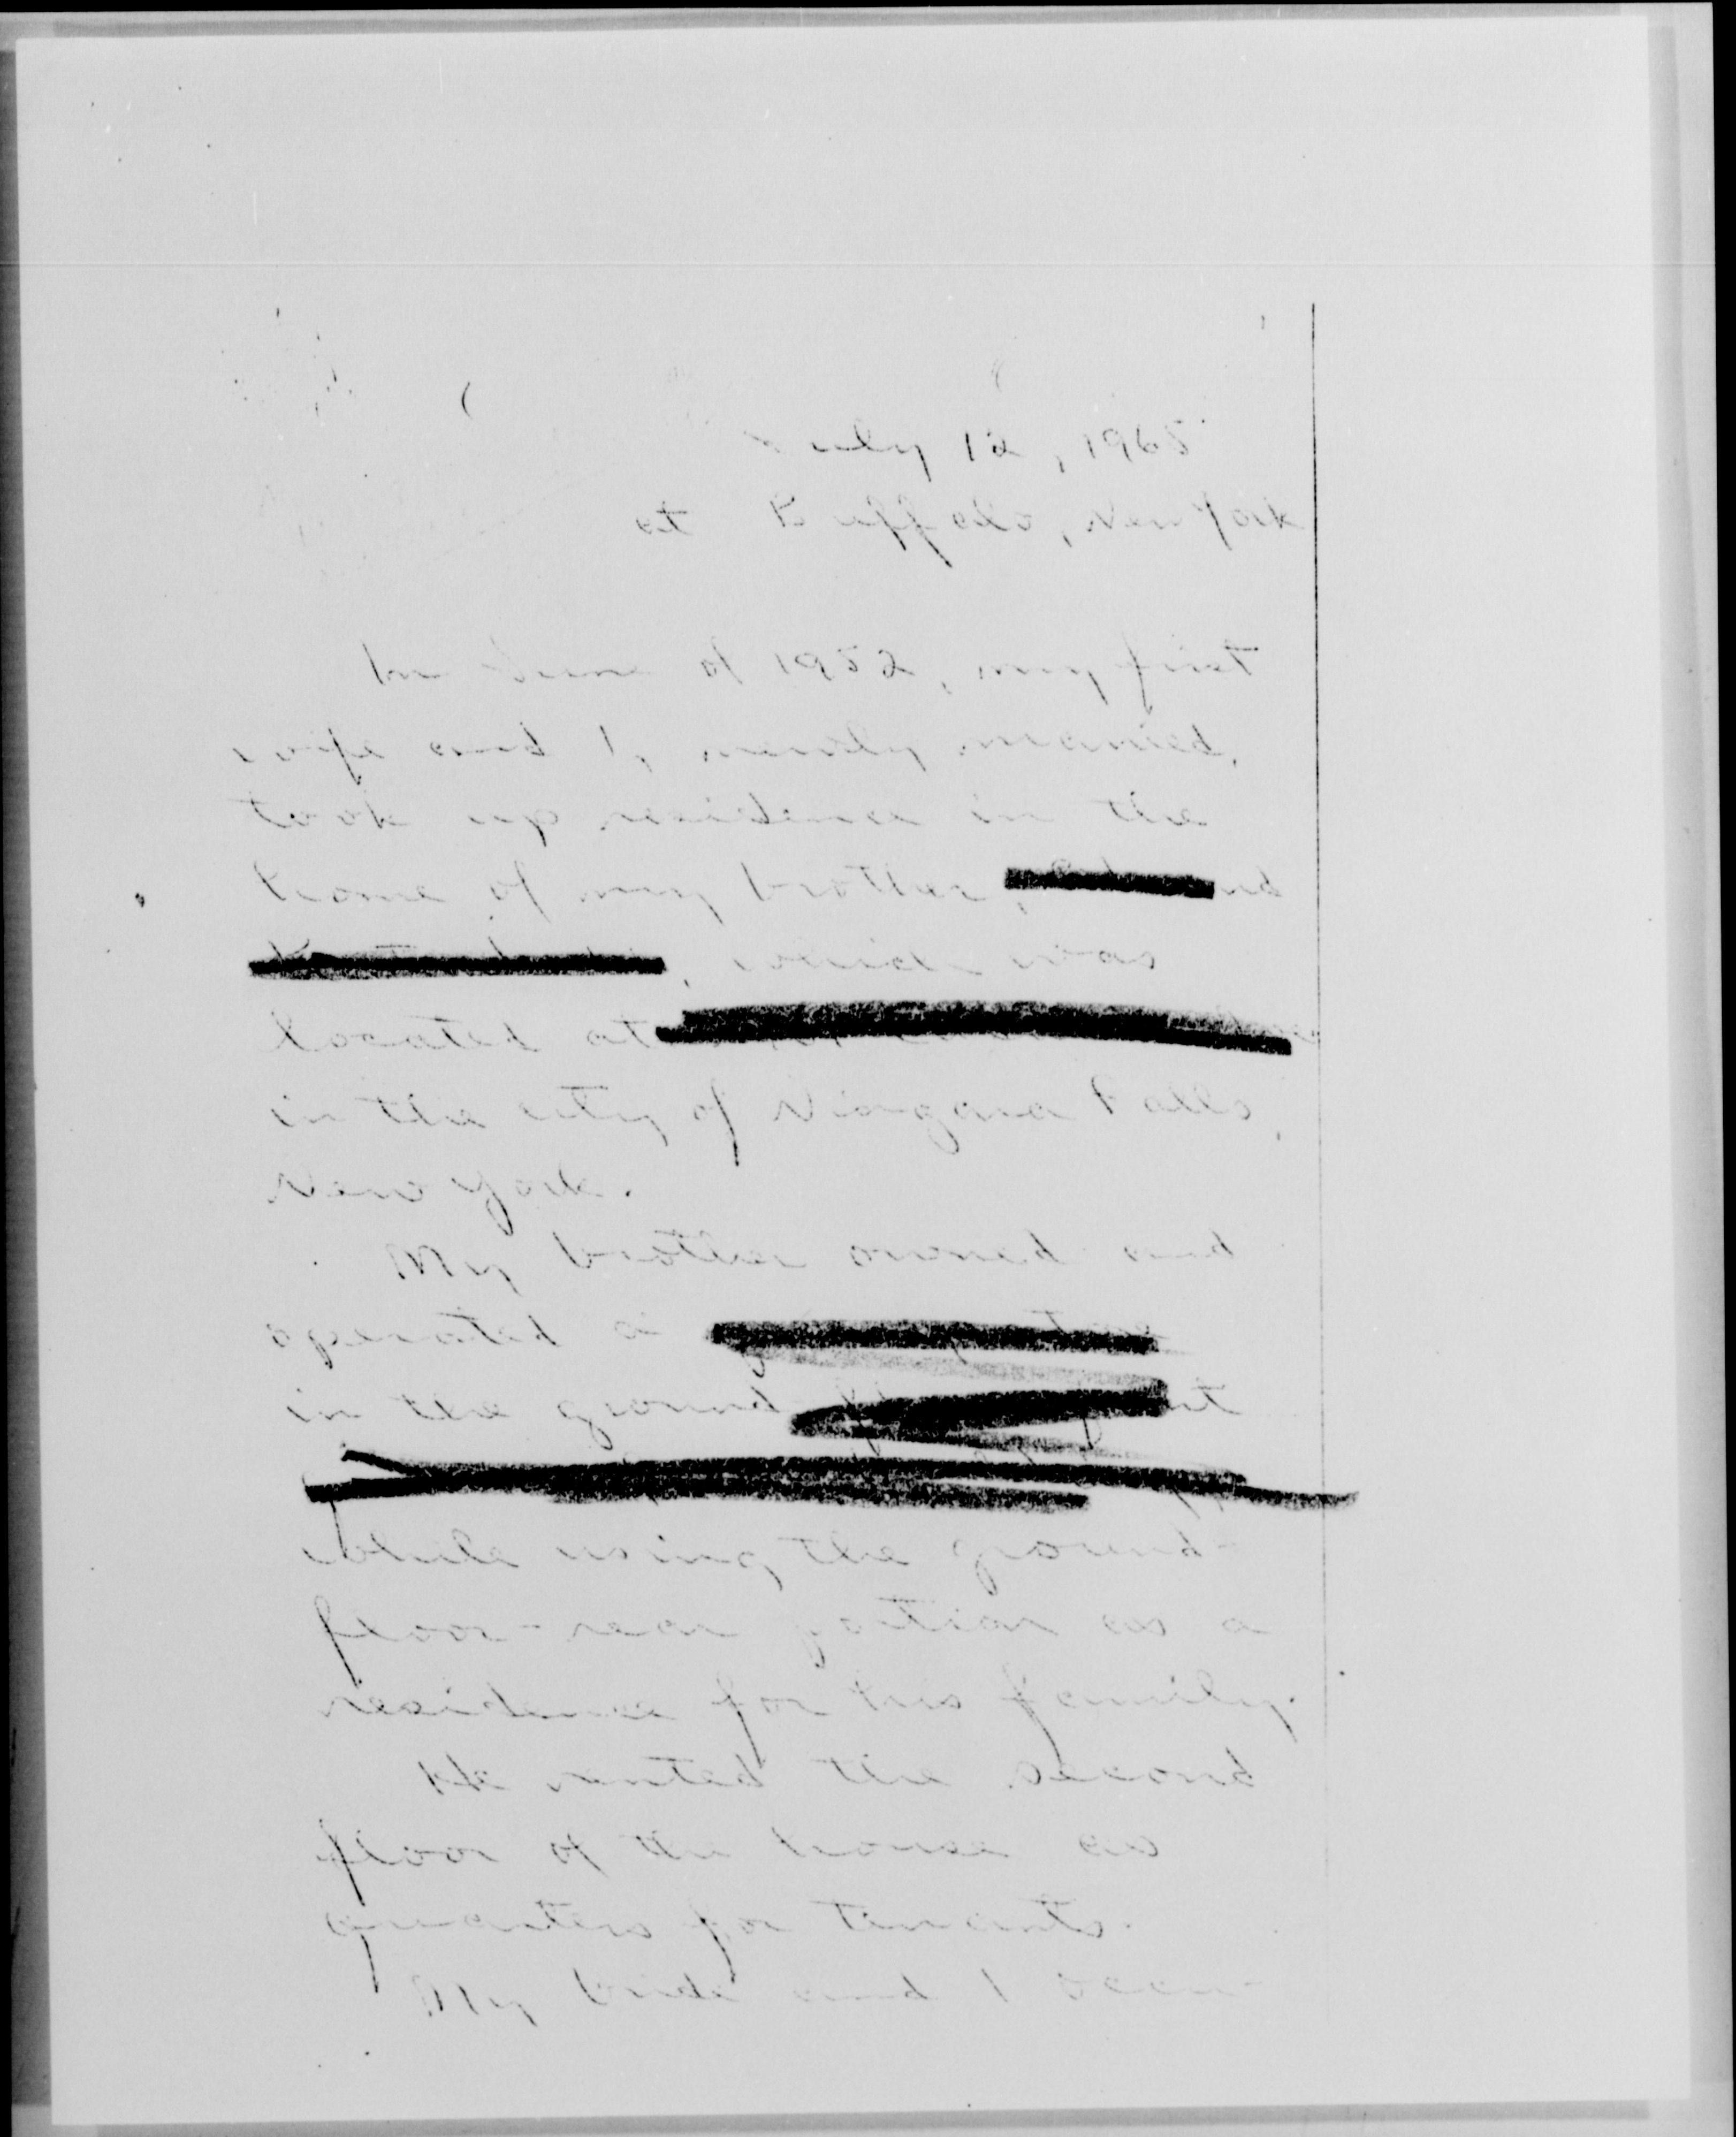 July 12, 1965
at Buffalo, New York
In June of 1952, my first
wife and I, newly married,
took up residence in the
home of my brother,
, which was
located at
in the city of Niagara Falls,
New York.
My brother owned and
operated a
in the ground
while using the ground-
floor-rear portion as a
residence for his family.
He rented the second
floor of the house as
quarters for tenants.
My bride and I occu-